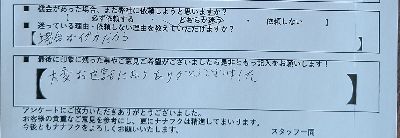 ■ 機会があった場合、また弊社に依頼しようと思いますか?
必ず依頼する ・ どちらか迷う ・ 依頼しない
■ 迷っている理由・依頼しない理由を教えていただけますか?
■ 最後に印象に残った事やご意見ご希望がございましたら是非ともご記入お願いします!
大変お世話になりありがとうございました。
アンケートにご協力いただきありがとうございました。
お客様の貴重なご意見を参考にし、更にナナフクは精進してまいります。
今後ともナナフクをよろしくお願いいたします。
スタッフ一同